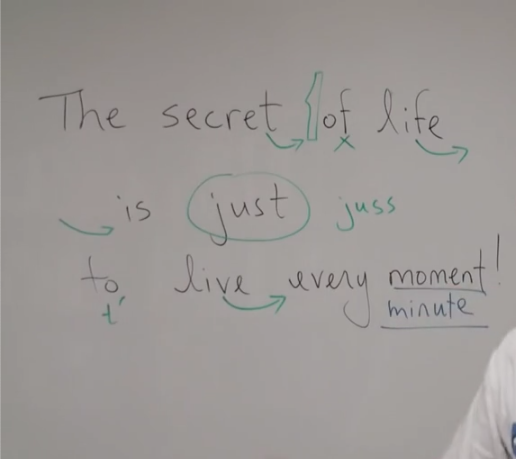 The secret of life
x
is just juss
to live every moment!
t' minute